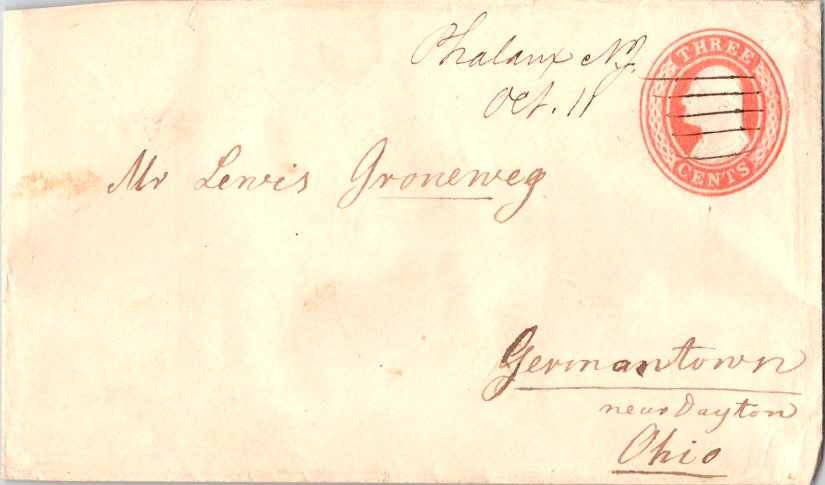 Phalanx NJ.
Oct. 11
THREE
CENTS
Mr Lewis Groneweg
Germantown
near Dayton
Ohio